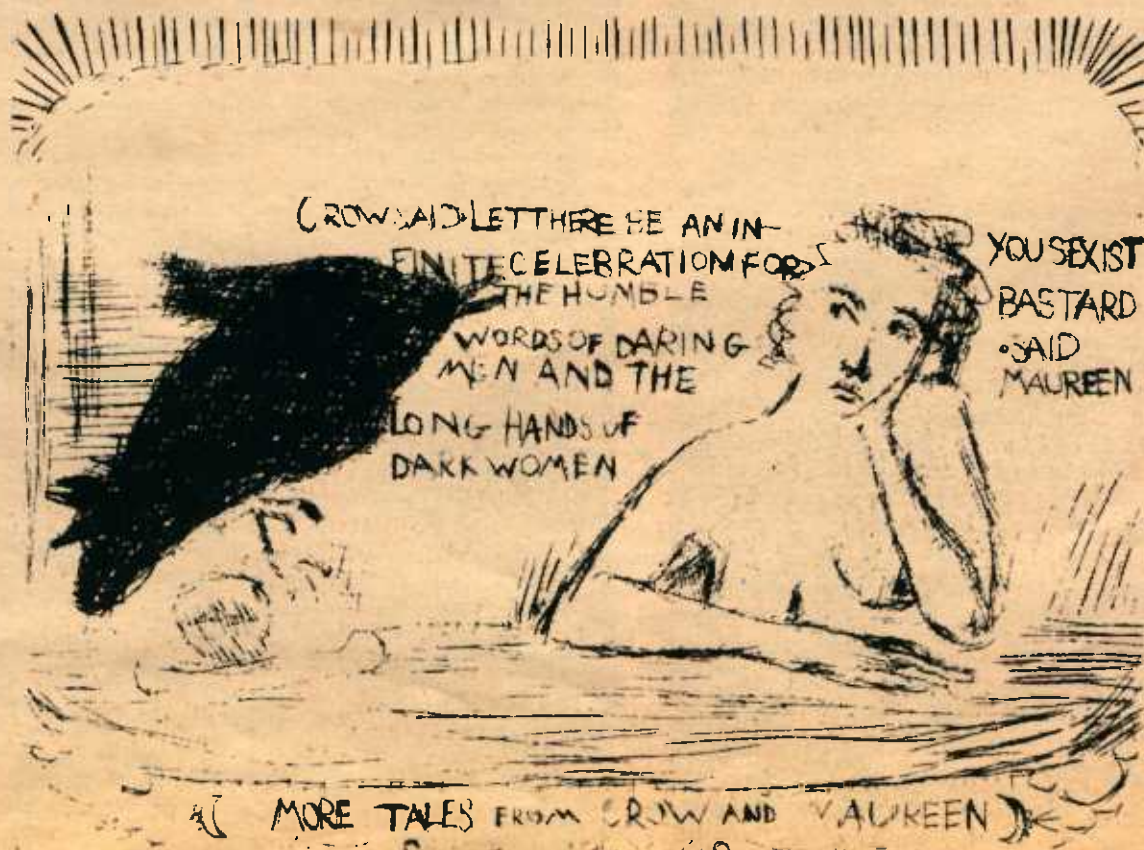 CROW SAID LET THERE BE AN IN-
FINITE CELEBRATION FOR
THE HUMBLE
WORDS OF DARING
MEN AND THE
LONG HANDS OF
DARK WOMEN
YOU SEXIST
BASTARD
SAID
MAUREEN
MORE TALES FROM CROW AND MAUREEN